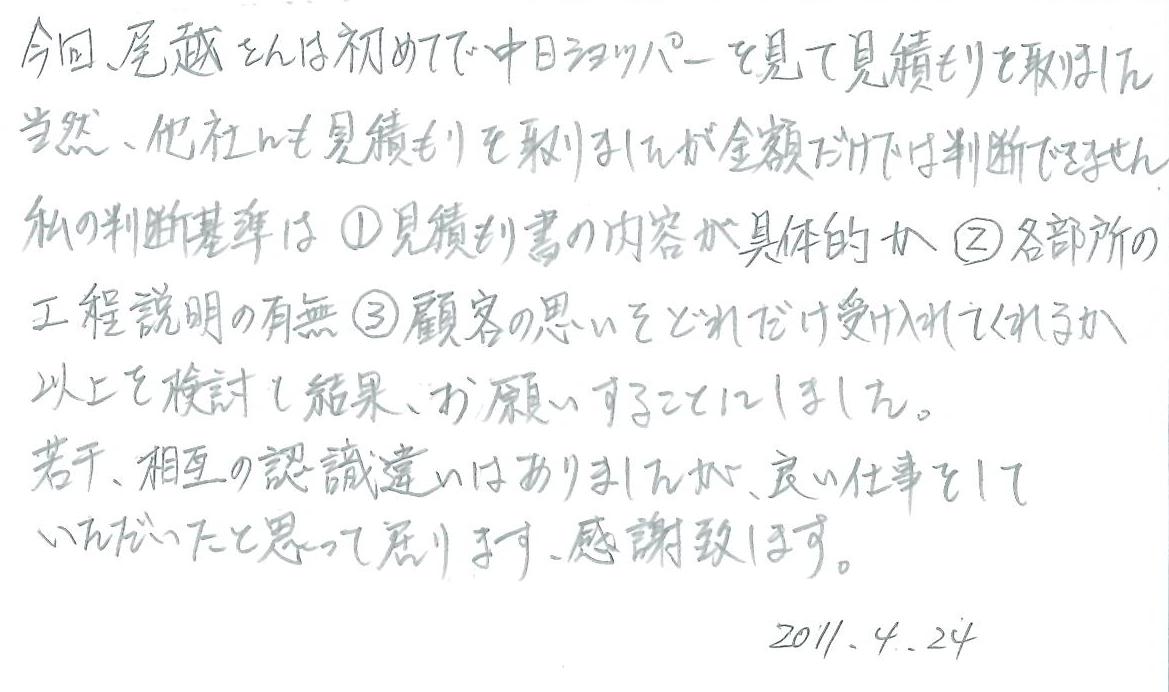 今回、尾越さんは初めてで中日ショッパーを見て見積もりを取りました
当然、他社にも見積もりを取りましたが金額だけでは判断できません
私の判断基準は ①見積もり書の内容が具体的か ②各部所の
工程説明の有無 ③顧客の思いをどれだけ受け入れてくれるか
以上を検討し結果、お願いすることにしました。
若干、相互の認識違いはありましたが、良い仕事をして
いただいたと思って居ります、感謝致します。
2011.4.24